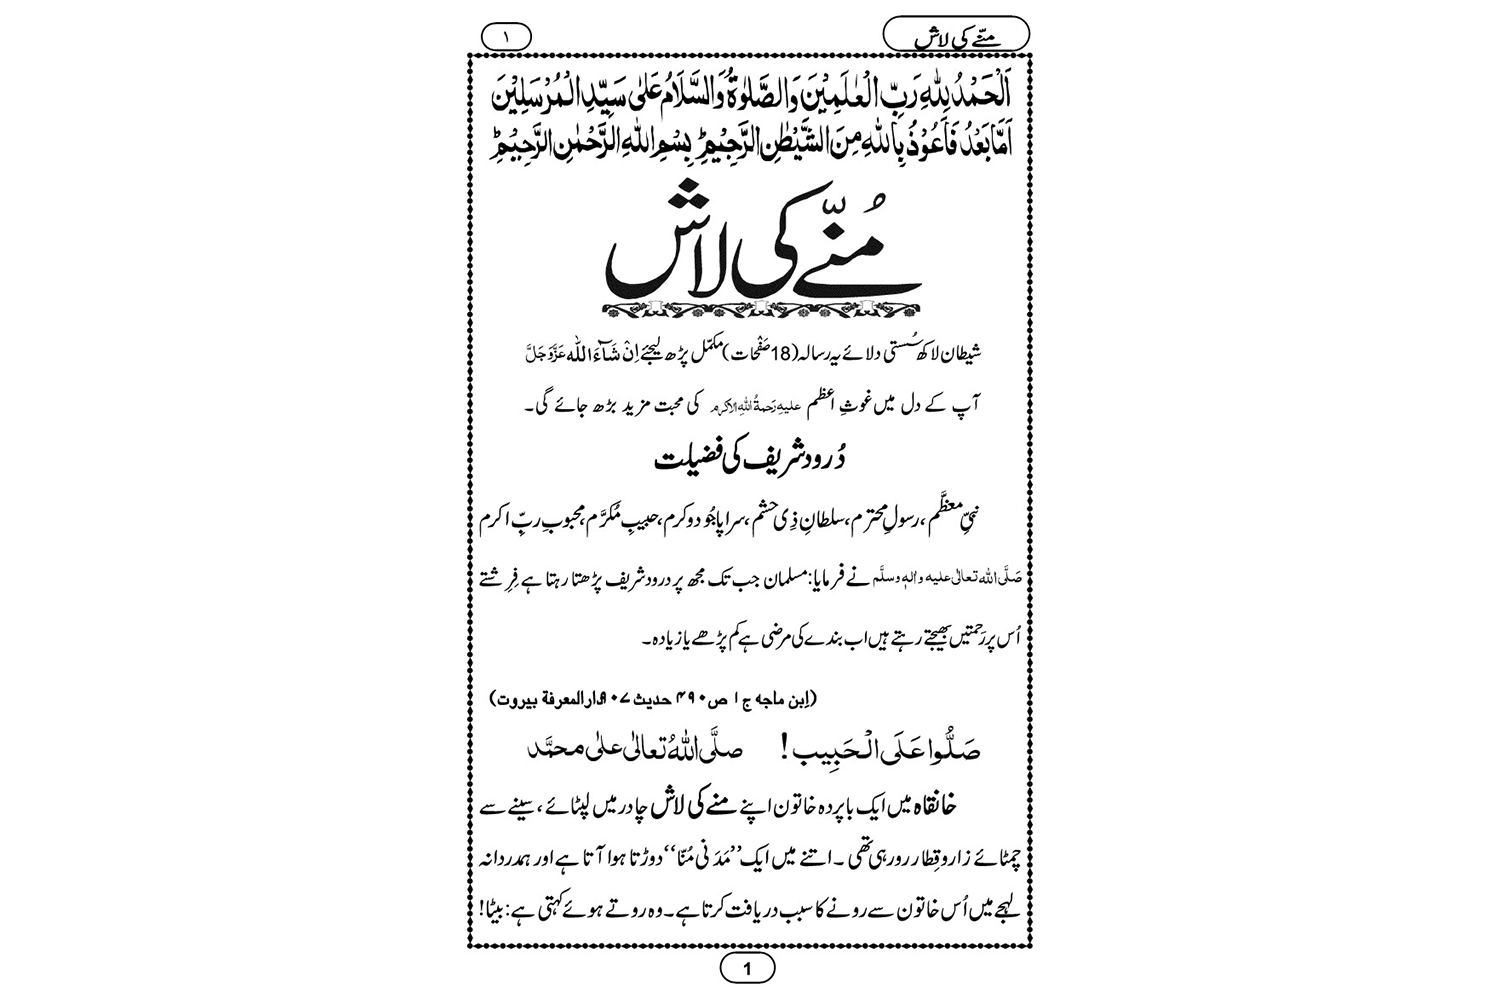 مُنّے کی لاش
۱
اَلْحَمْدُ لِلّٰهِ رَبِّ الْعٰلَمِیْنَ وَالصَّلٰوةُ وَالسَّلَامُ عَلٰی سَیِّدِ الْمُرْسَلِیْنَ
اَمَّا بَعْدُ فَاَعُوْذُ بِاللّٰهِ مِنَ الشَّیْطٰنِ الرَّجِیْمِؕ بِسْمِ اللّٰهِ الرَّحْمٰنِ الرَّحِیْمِؕ
مُنّے کی لاش
شیطان لاکھ سُستی دلائے یہ رسالہ (18 صَفْحات) مکمّل پڑھ لیجئے اِنْ شَآءَ اللّٰه عَزَّوَجَلَّ
آپ کے دل میں غوثِ اعظم علیہِ رَحمۃُ اللہِ الاکرم کی محبت مزید بڑھ جائے گی۔
دُرود شریف کی فضیلت
نبیِّ معظَّم، رسولِ محترم، سلطانِ ذِی حشم، سراپا جُود و کرم، حبیبِ مُکرَّم، محبوبِ ربِّ اکرم
صَلَّی اللہ تعالٰی علیہ واٰلہٖ وسلَّم نے فرمایا: مسلمان جب تک مجھ پر درود شریف پڑھتا رہتا ہے فِرِشتے
اُس پر رَحمتیں بھیجتے رہتے ہیں اب بندے کی مرضی ہے کم پڑھے یا زیادہ۔
(اِبن ماجہ ج ۱ ص ۴۹۰ حدیث ۹۰۷ دارالمعرفۃ بیروت)
صَلُّوا عَلَی الْحَبِیب! صلَّی اللّٰہُ تعالٰی علٰی محمَّد
خانقاہ میں ایک باپردہ خاتون اپنے منے کی لاش چادر میں لپٹائے، سینے سے
چمٹائے زار و قِطار رو رہی تھی۔ اتنے میں ایک ”مَدَنی مُنّا“ دوڑتا ہوا آتا ہے اور ہمدردانہ
لہجے میں اُس خاتون سے رونے کا سبب دریافت کرتا ہے۔ وہ روتے ہوئے کہتی ہے: بیٹا!
1